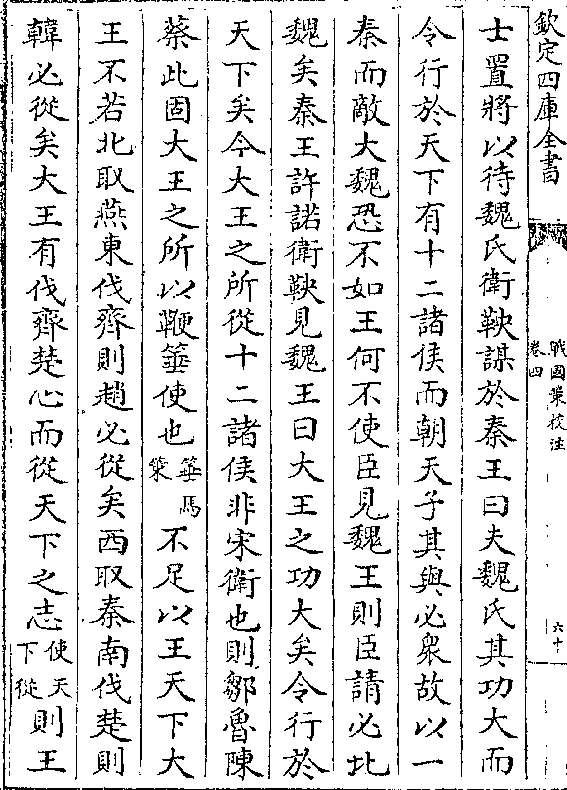 欽定四庫全書
戰國䇿校注
卷四
六十
士置將以待魏氏衛鞅謀於秦王曰夫魏氏其功大而
令行於天下有十二諸侯而朝天子其與必衆故以一
秦而敵大魏恐不如王何不使臣見魏王則臣請必北
魏矣秦王許諾衛鞅見魏王曰大王之功大矣令行於
天下矣今大王之所從十二諸侯非宋衛也則鄒魯陳
蔡此固大王之所以鞭箠使也箠馬䇿不足以王天下大
王不若北取燕東伐齊則趙必從矣西取秦南伐楚則
韓必從矣大王有伐齊楚心而從天下之志使天下從則王